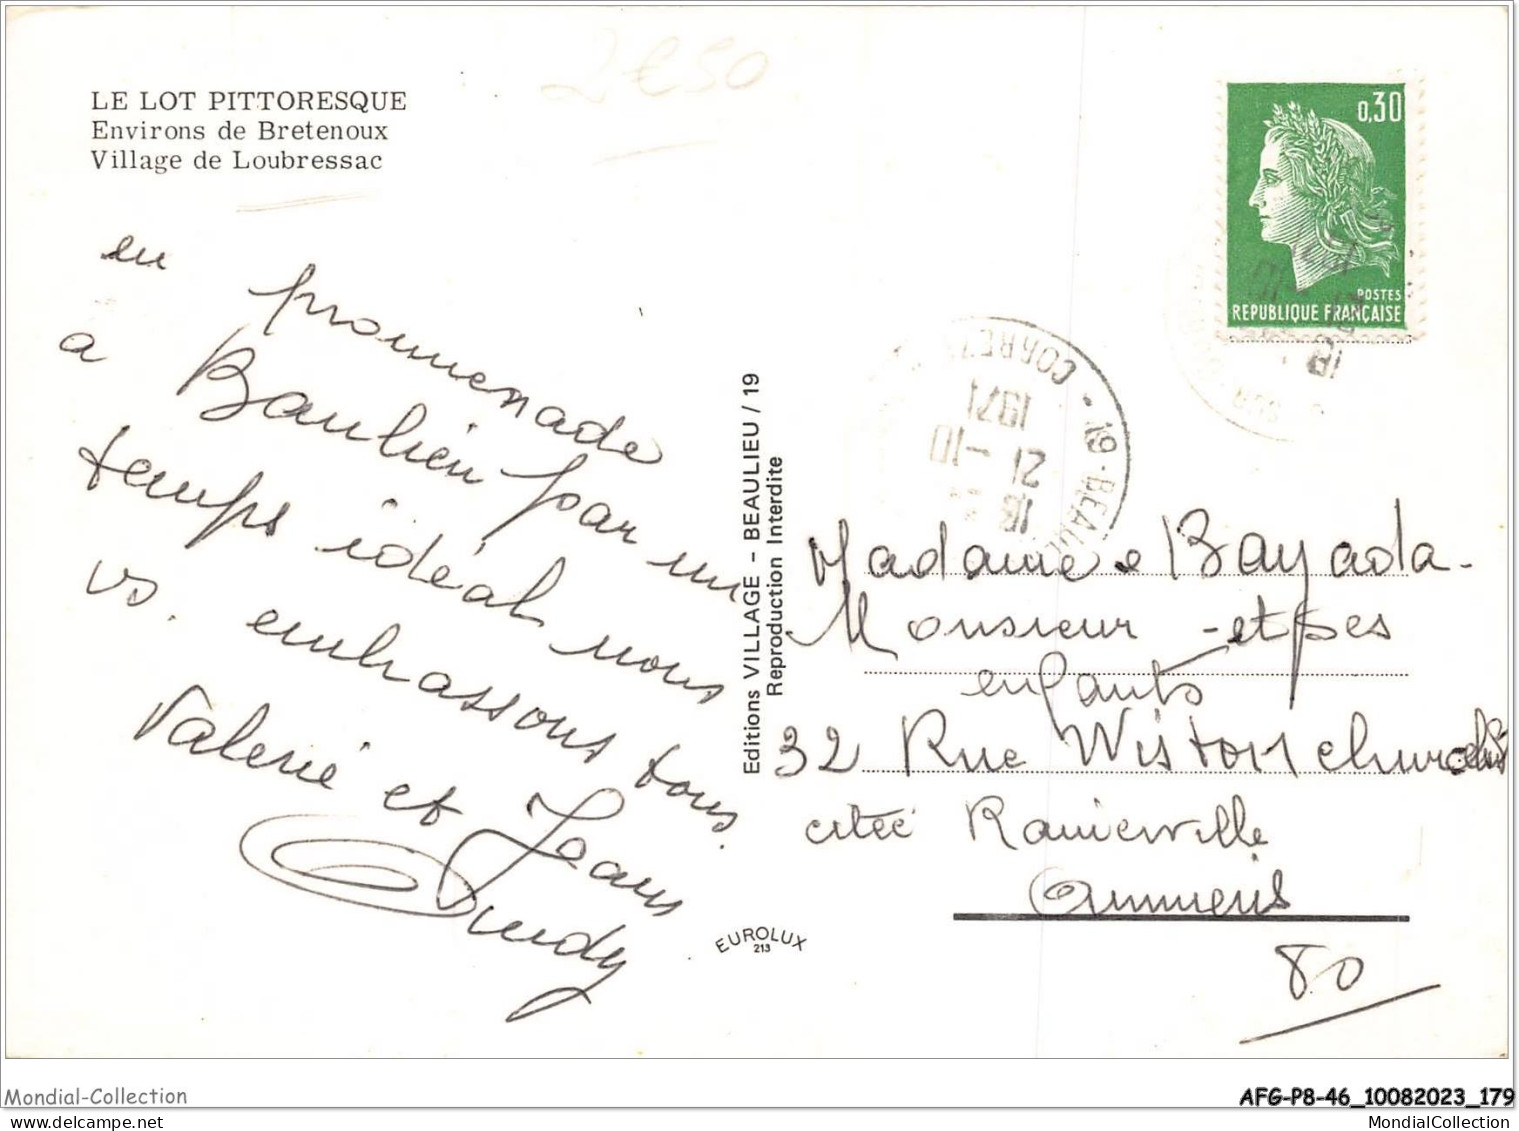 2€50
LE LOT PITTORESQUE
Environs de Bretenoux
Village de Loubressac
0,30
POSTES
REPUBLIQUE FRANÇAISE
en promenade
a Baulieu par un
temps idéal nous
vs. embrassons tous.
Valerie et Jean
Editions VILLAGE - BEAULIEU / 19
Reproduction Interdite
19 - BEAU
CORREZE
16
21 -10
1971
Madame Bayada -
Monsieur - et ses
enfants
32 Rue Wiston churchil
citee Ranierville
Ammiens
80
EUROLUX
213
Mondial-Collection
AFG-P8-46_10082023_179
delcampe.net
MondialCollection